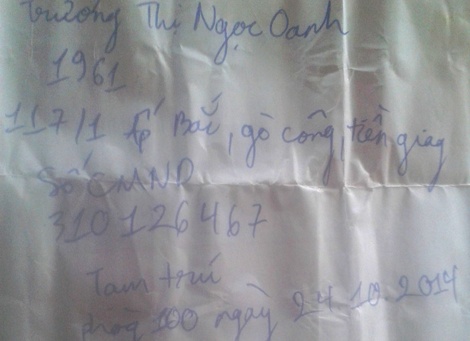 Trương Thị Ngọc Oanh
1961
117/1 Ấp Bắc, gò công, tiền giag
Số CMND
310126467
Tam trú
phog 100 ngày 24.10.2014